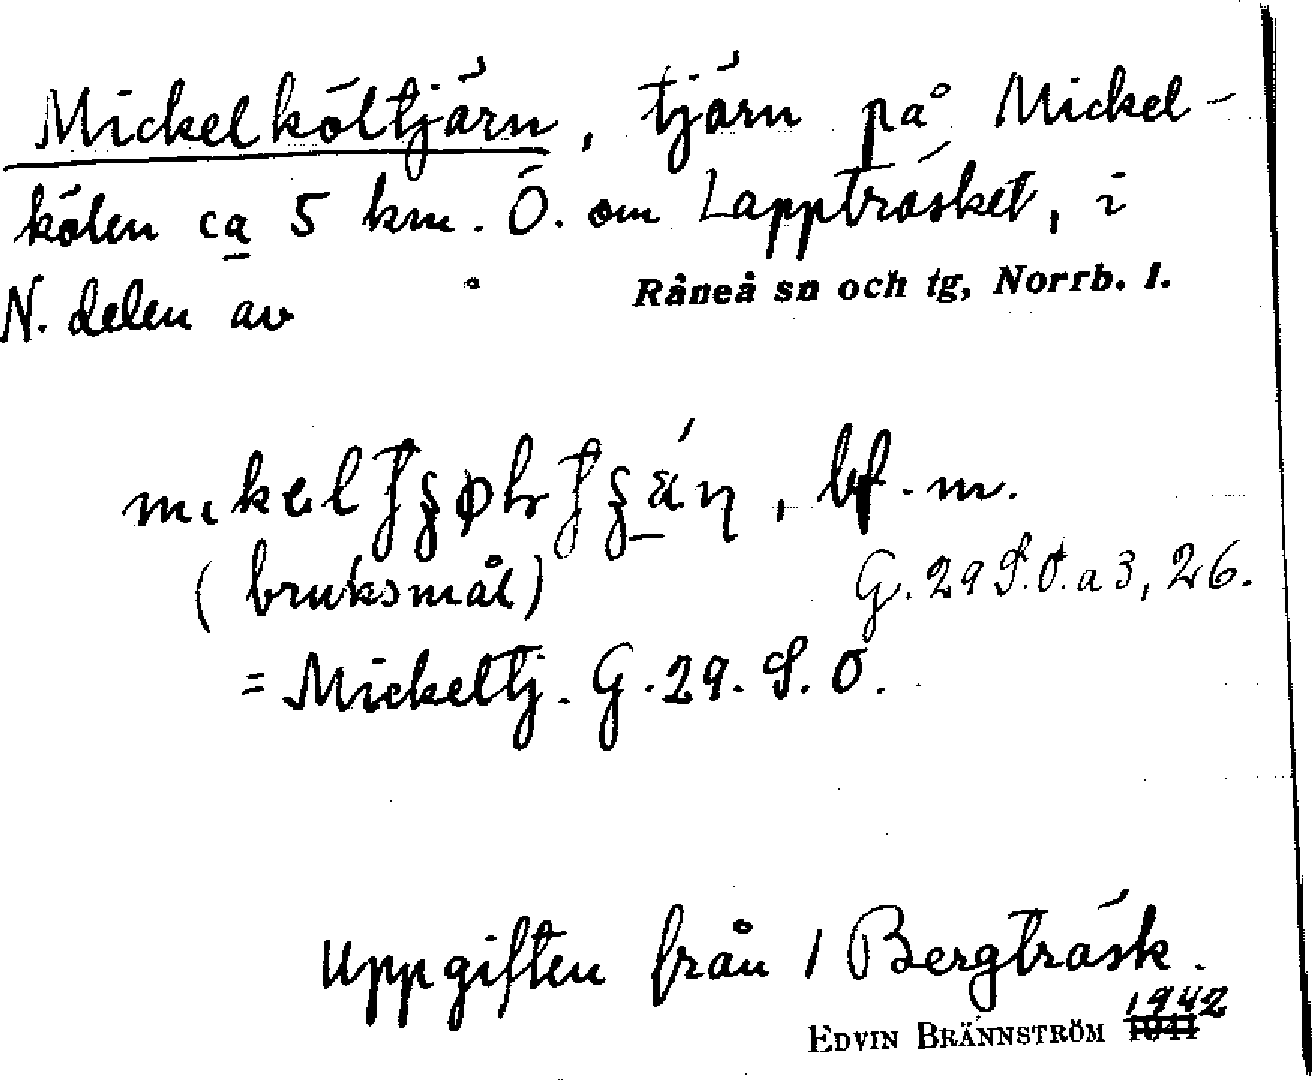 Mickelköltjärn, tjärn på Mickel-
kölen ca 5 km. Ö. om Lappträsket, i
N. delen av Råneå sn och tg, Norrb. l.
, bf. m.
(bruksmål) G. 29 S.O. a 3, 26.
= Mickeltj. G. 29. S. O.
Uppgiften från 1 Bergträsk.
EDVIN BRÄNNSTRÖM 1942